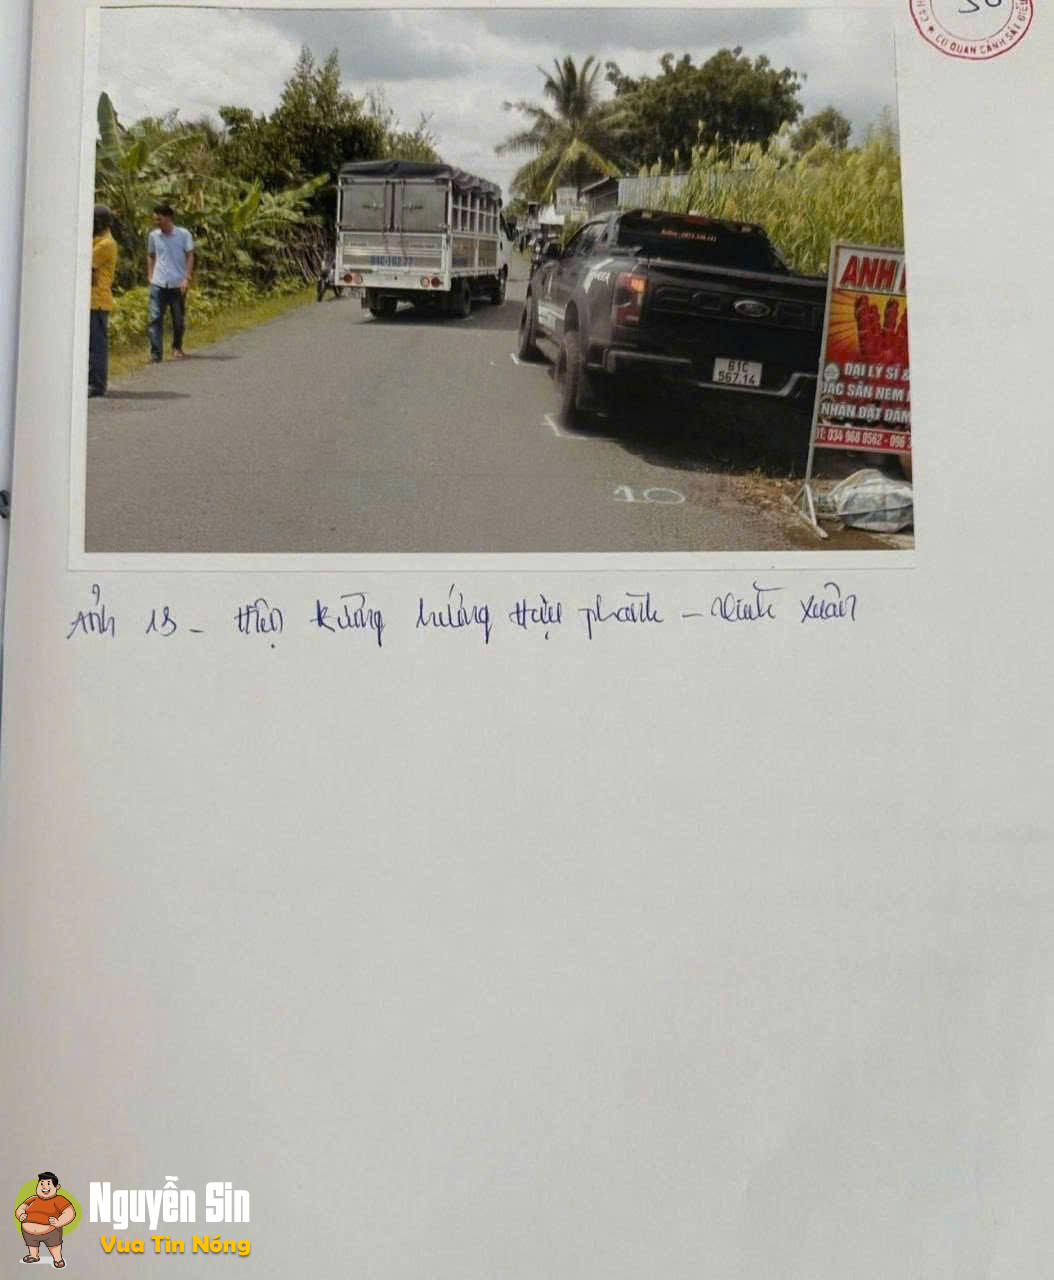 30
CƠ QUAN CẢNH SÁT ĐIỀU
61C
567.14
ANH
ĐẠI LÝ SỈ &
ĐẶC SẢN NEM
NHẬN ĐẶT ĐÁM
ĐT: 034 968 0562 - 096
10
Ảnh 13 - Hiện trường hướng Hậu Thành - Xuân
Nguyễn Sin
Vua Tin Nóng